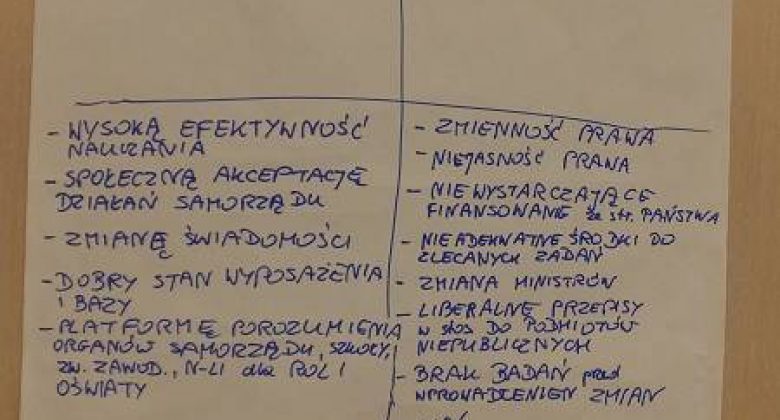 - WYSOKĄ EFEKTYWNOŚĆ
NAUCZANIA
- SPOŁECZNĄ AKCEPTACJĘ
DZIAŁAŃ SAMORZĄDU
- ZMIANĘ ŚWIADOMOŚCI
- DOBRY STAN WYPOSAŻENIA
I BAZY
- PLATFORMĘ POROZUMIENIA
ORGANÓW SAMORZĄDU, SZKOŁY,
ZW. ZAWOD., N-LI dla
OŚWIATY
- ZMIENNOŚĆ PRAWA
- NIEJASNOŚĆ PRAWA
- NIEWYSTARCZAJĄCE
FINANSOWANIE ze str. PAŃSTWA
- NIEADEKWATNE ŚRODKI DO
ZLECANYCH ZADAŃ
- ZMIANA MINISTRÓW
- LIBERALNE PRZEPISY
w stos DO PODMIOTÓW
NIEPUBLICZNYCH
- BRAK BADAŃ przed
WPROWADZENIEM ZMIAN